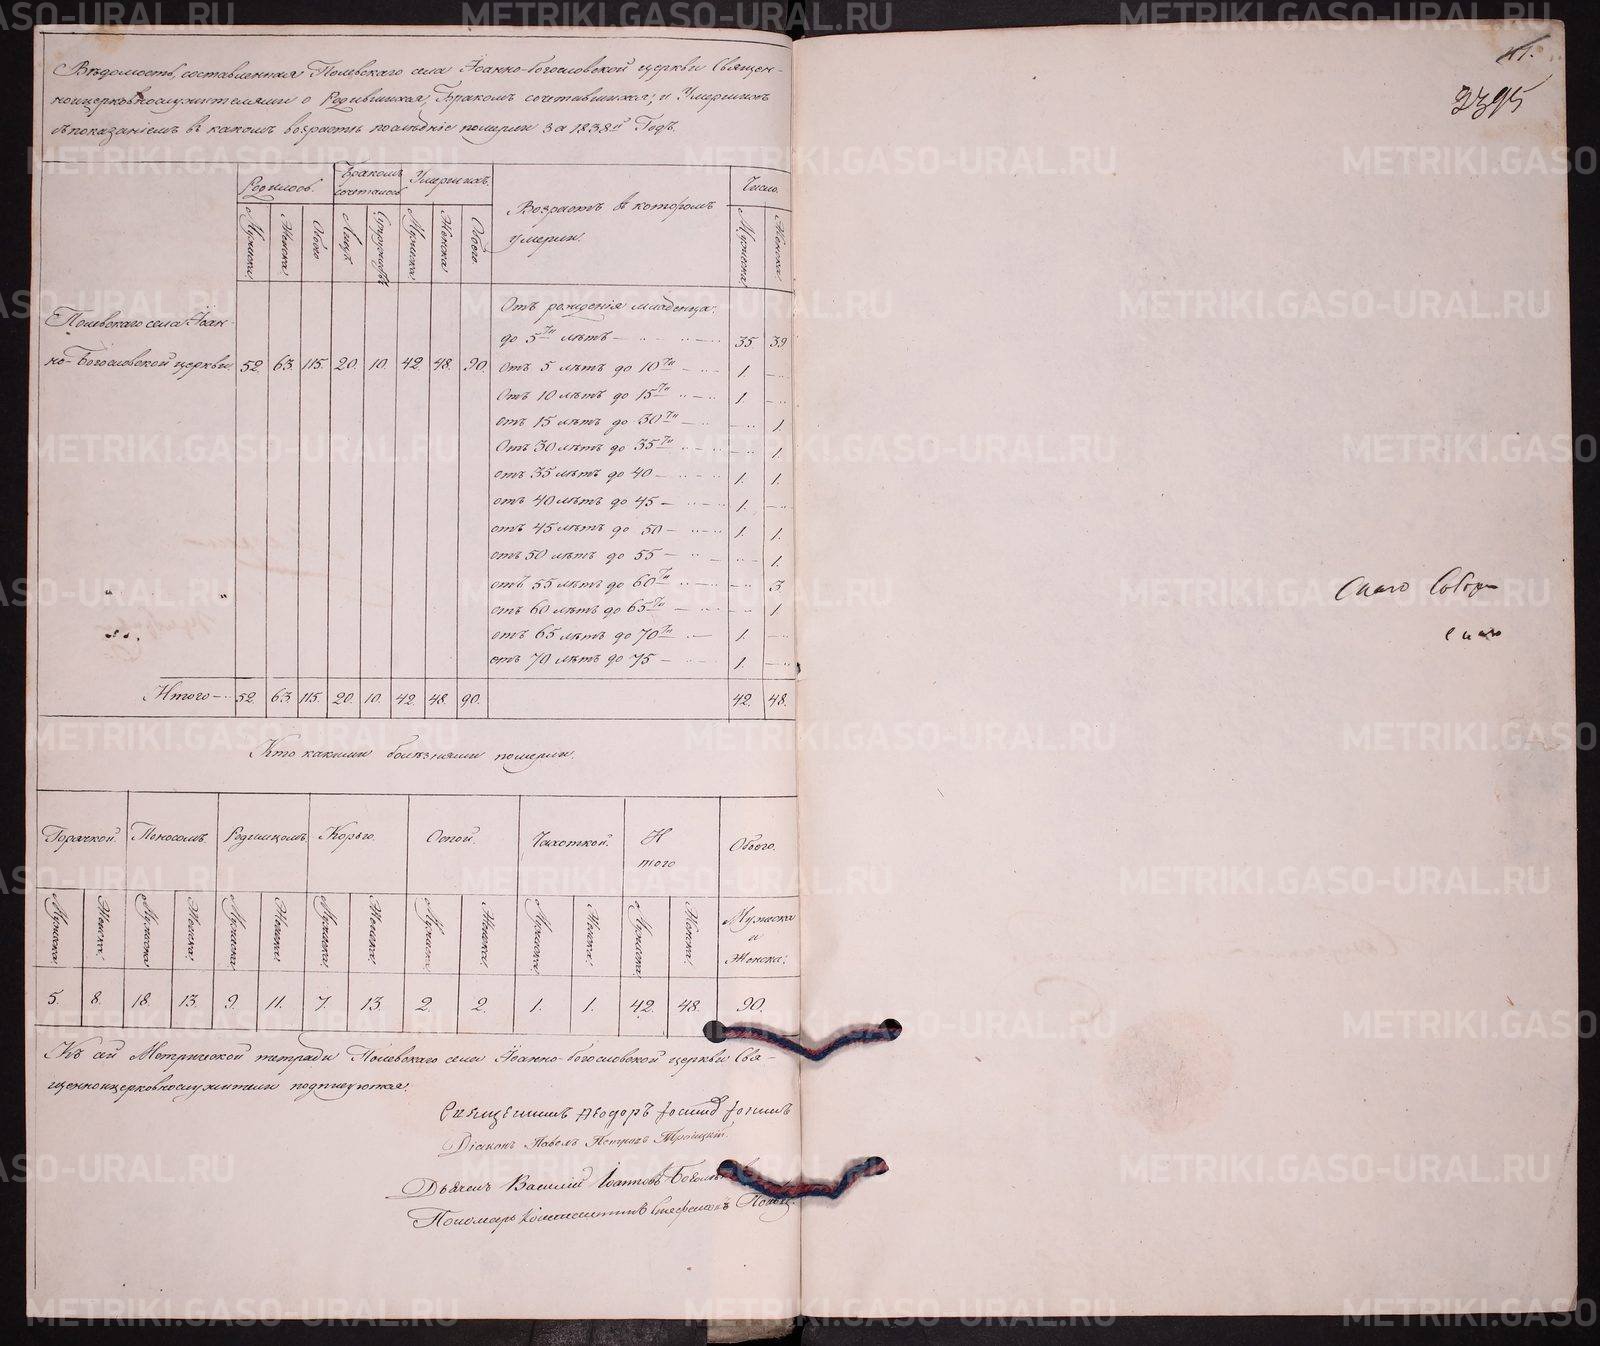 Вѣдомость, составленная Полевскаго села Іоанно-богословской церкви Священ-
ноцерковнослужителями о Родившихся, Бракомъ сочетавшихся, и Умершихъ
съ показаніемъ въ какомъ возрастѣ послѣдніе померли за 1838й Годъ.
Родилось. Бракомъ сочеталось Умершихъ. Возрастъ в которомъ умерли. Число.
Мужска. Женска. Обоего Лицъ Супружествъ Мужска. Женска. Обоего. Мужска. Женска.
Полевскаго села Іоан-
но-Богословской церкви 52. 63. 115. 20. 10. 42. 48. 90.
Отъ рожденія младенца.
до 5ти лѣтъ 35. 39.
отъ 5 лѣтъ до 10ти 1. —
Отъ 10 лѣтъ до 15ти 1. —
отъ 15 лѣтъ до 30ти — 1.
Отъ 30 лѣтъ до 35ти — 1.
отъ 35 лѣтъ до 40 — 1. 1.
отъ 40 лѣтъ до 45 — 1. —
отъ 45 лѣтъ до 50 — 1. 1.
отъ 50 лѣтъ до 55 — — 1.
отъ 55 лѣтъ до 60ти — 3.
отъ 60 лѣтъ до 65ти — 1.
отъ 65 лѣтъ до 70ти 1. —
отъ 70 лѣтъ до 75 — 1. —
Итого — 52. 63. 115. 20. 10. 42. 48. 90. 42. 48.
Кто какими болѣзнями померли.
Горячкой. Поносомъ. Родимцомъ. Корью. Оспой. Чахоткой. Итого Обоего.
Мужска. Женска. Мужска. Женска. Мужска. Женска. Мужска. Женска. Мужска. Женска. Мужска. Женска. Мужска. Женска. Мужска и Женска.
5. 8. 18. 13. 9. 11. 7. 13. 2. 2. 1. 1. 42. 48. 90.
Къ сей Метрической тетради Полевскаго села Іоанно-богословской церкви Свя-
щенноцерковнослужители подписуются.
Священникъ Ѳеодоръ
Діаконъ Павелъ Петровъ Троицкій.
Дьячекъ Василій Іоанновъ
Пономарь Константинъ Стефановъ Поповъ.
41.
2395
METRIKI.GASO-URAL.RU